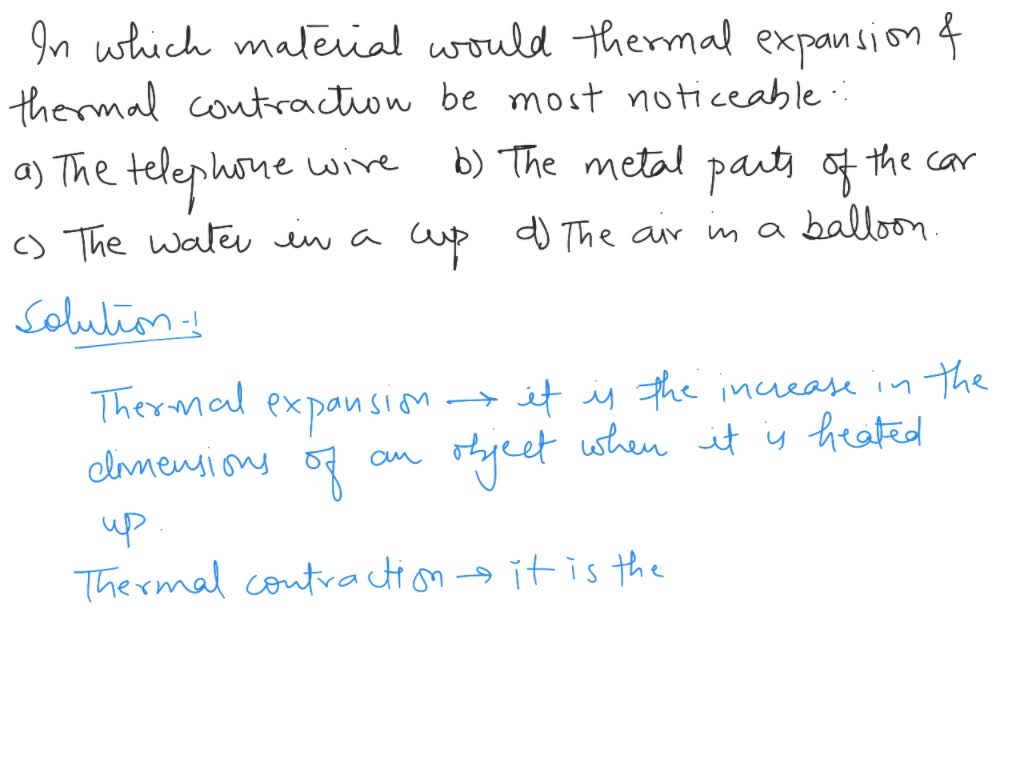 In which material would thermal expansion &
thermal contraction be most noticeable :
a) The telephone wire b) The metal parts of the car
c) The water in a cup d) The air in a balloon.
Solution :-
Thermal expansion → it is the increase in the
dimensions of an object when it is heated
up.
Thermal contraction → it is the